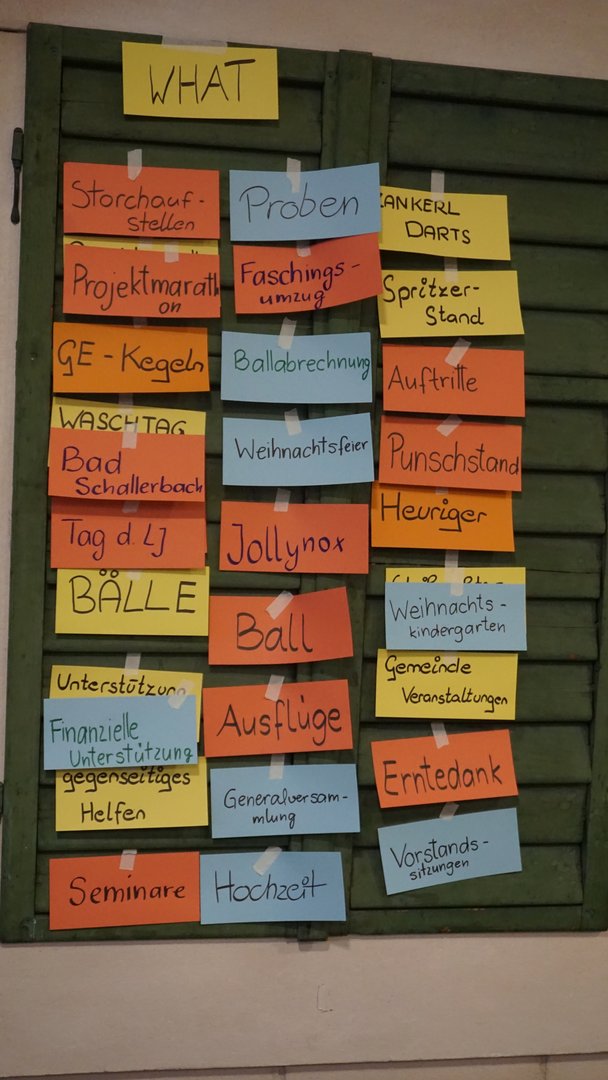 WHAT
Storchauf-
stellen
Projektmarath
on
GE-Kegeln
WASCHTAG
Bad
Schallerbach
Tag d. LJ
BÄLLE
Unterstützung
Finanzielle
Unterstützung
gegenseitiges
Helfen
Seminare
Proben
Faschings-
umzug
Ballabrechnung
Weihnachtsfeier
Jollynox
Ball
Ausflüge
Generalversam-
mlung
Hochzeit
ZANKERL
DARTS
Spritzer-
Stand
Auftritte
Punschstand
Heuriger
Weihnachts-
kindergarten
Gemeinde
Veranstaltungen
Erntedank
Vorstands-
sitzungen